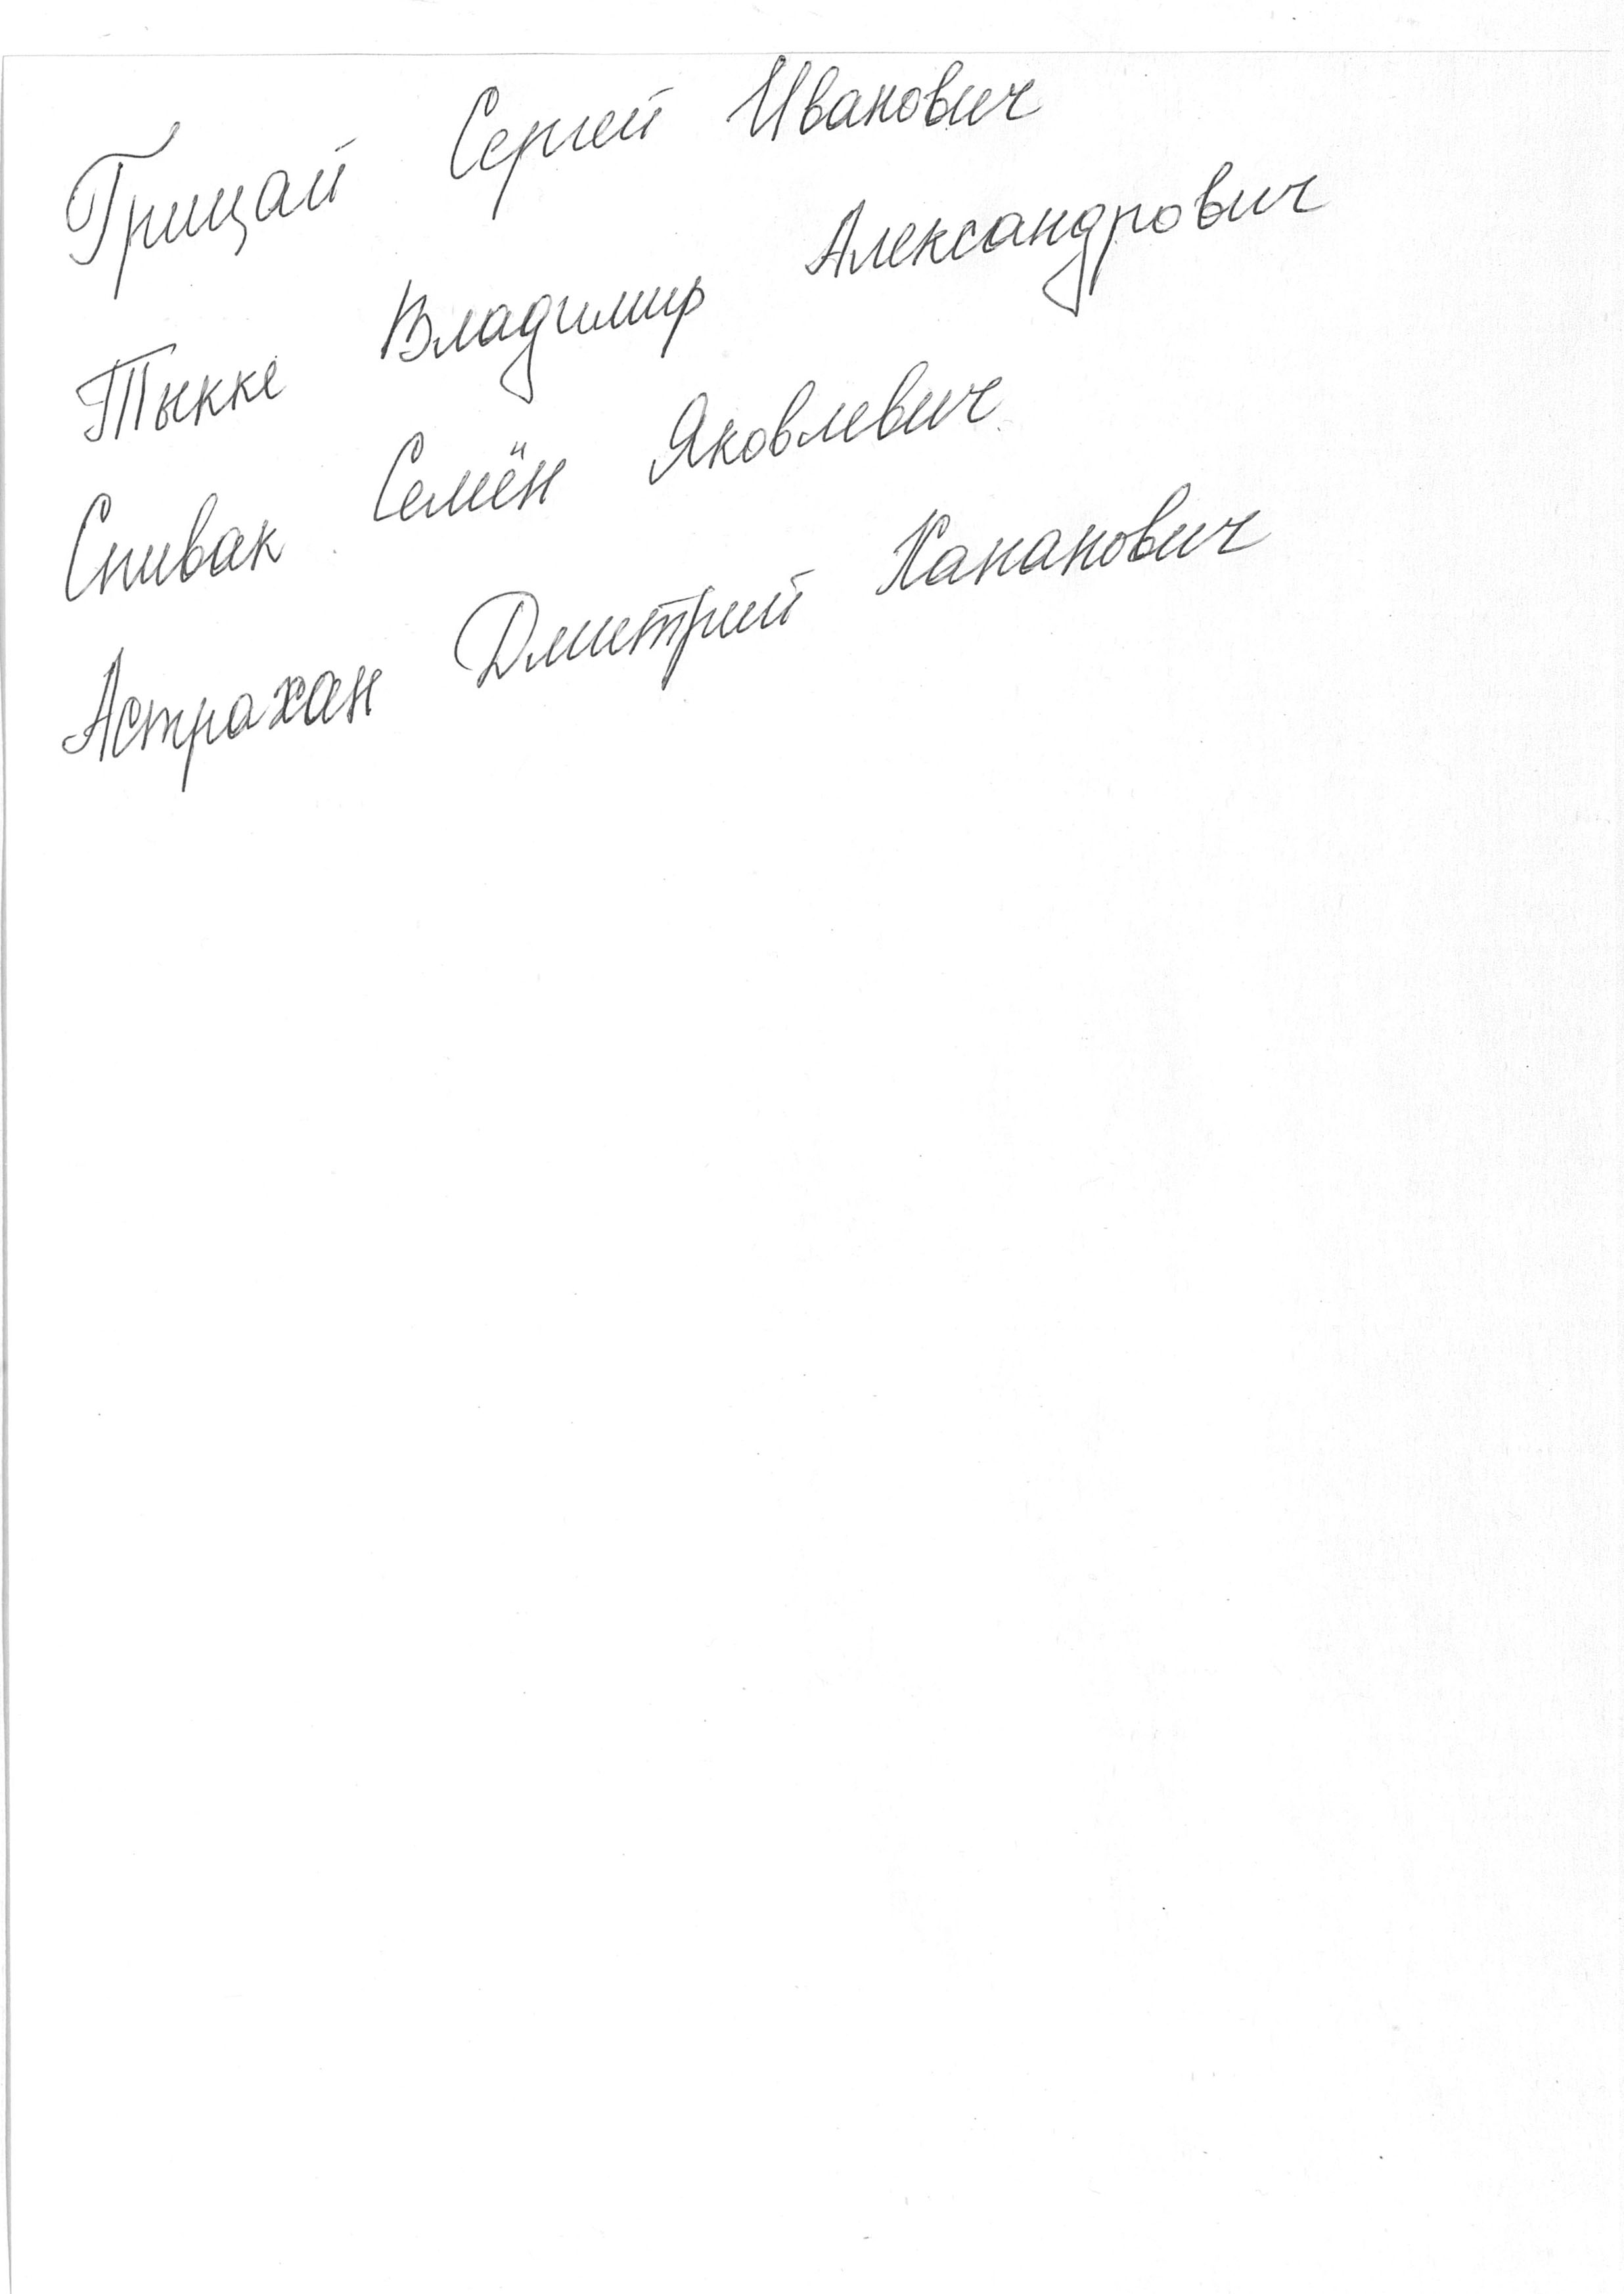 Грицай Сергей Иванович
Тыкке Владимир Александрович
Спивак Семён Яковлевич
Астрахан Дмитрий Хананович